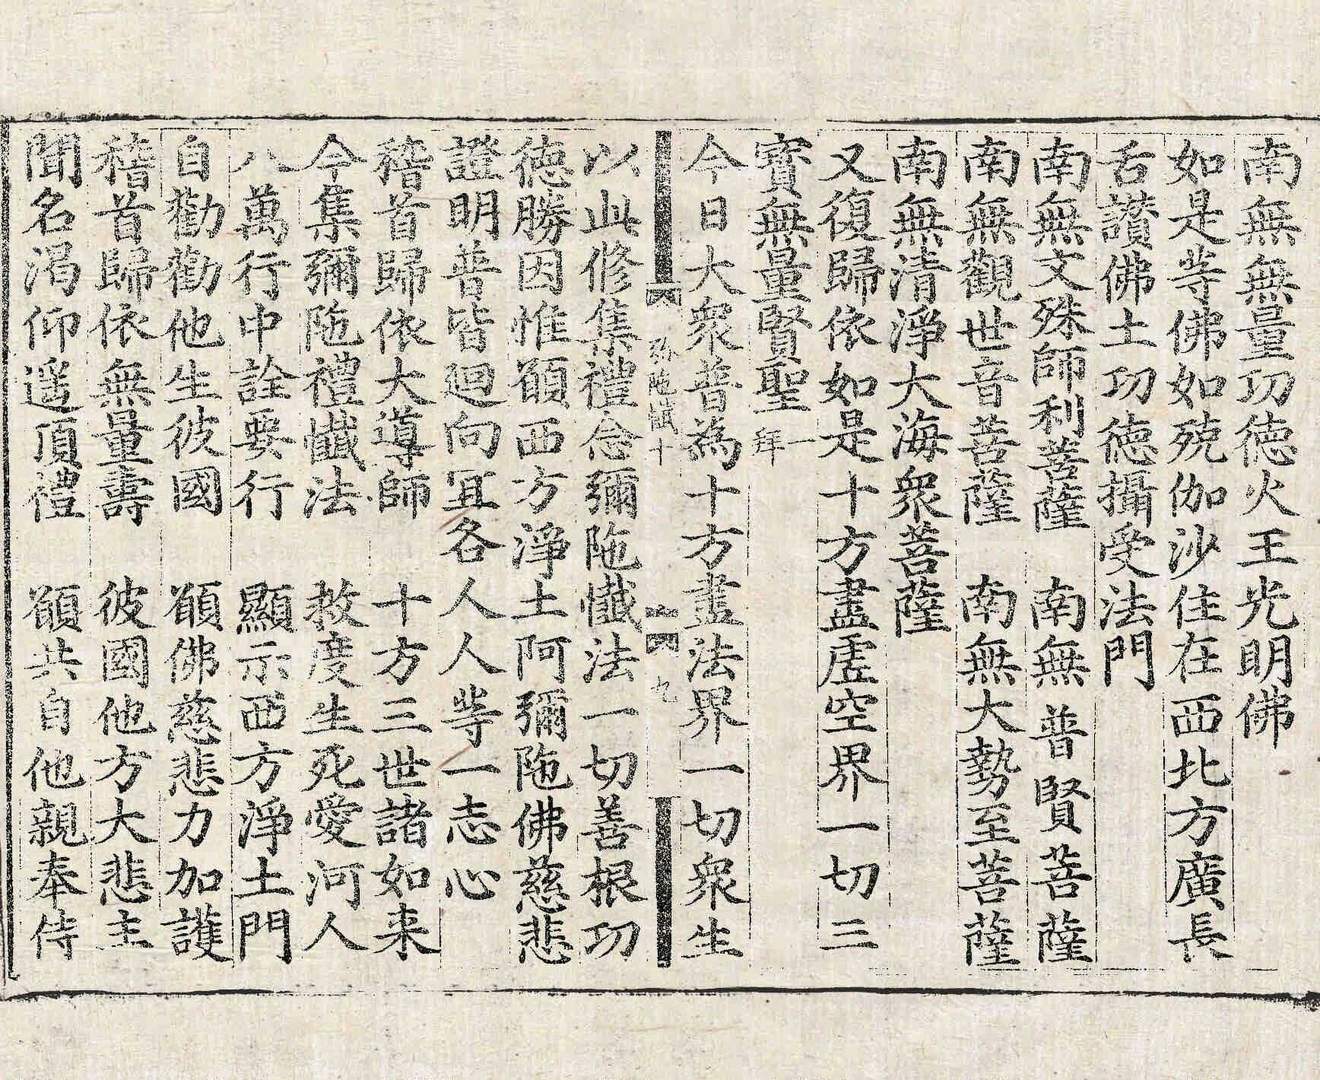 南無無量功德火王光明佛
如是等佛如殑伽沙住在西北方廣長
舌讚佛土功德攝受法門
南無文殊師利菩薩　南無普賢菩薩
南無觀世音菩薩　南無大勢至菩薩
南無清淨大海衆菩薩
又復歸依如是十方盡虛空界一切三
寶無量賢聖 一拜
今日大衆普為十方盡法界一切衆生
弥陁懴十　九
以此修集禮念彌陁懺法一切善根功
德勝因惟願西方淨土阿彌陁佛慈悲
證明普皆迴向冝各人人等一志心
稽首歸依大導師　十方三世諸如来
今集彌陁禮懺法　救度生死愛河人
八萬行中詮要行　顯示西方淨土門
自勸勸他生彼國　願佛慈悲力加護
稽首歸依無量壽　彼國他方大悲主
聞名渴仰遥頂禮　願共自他親奉侍